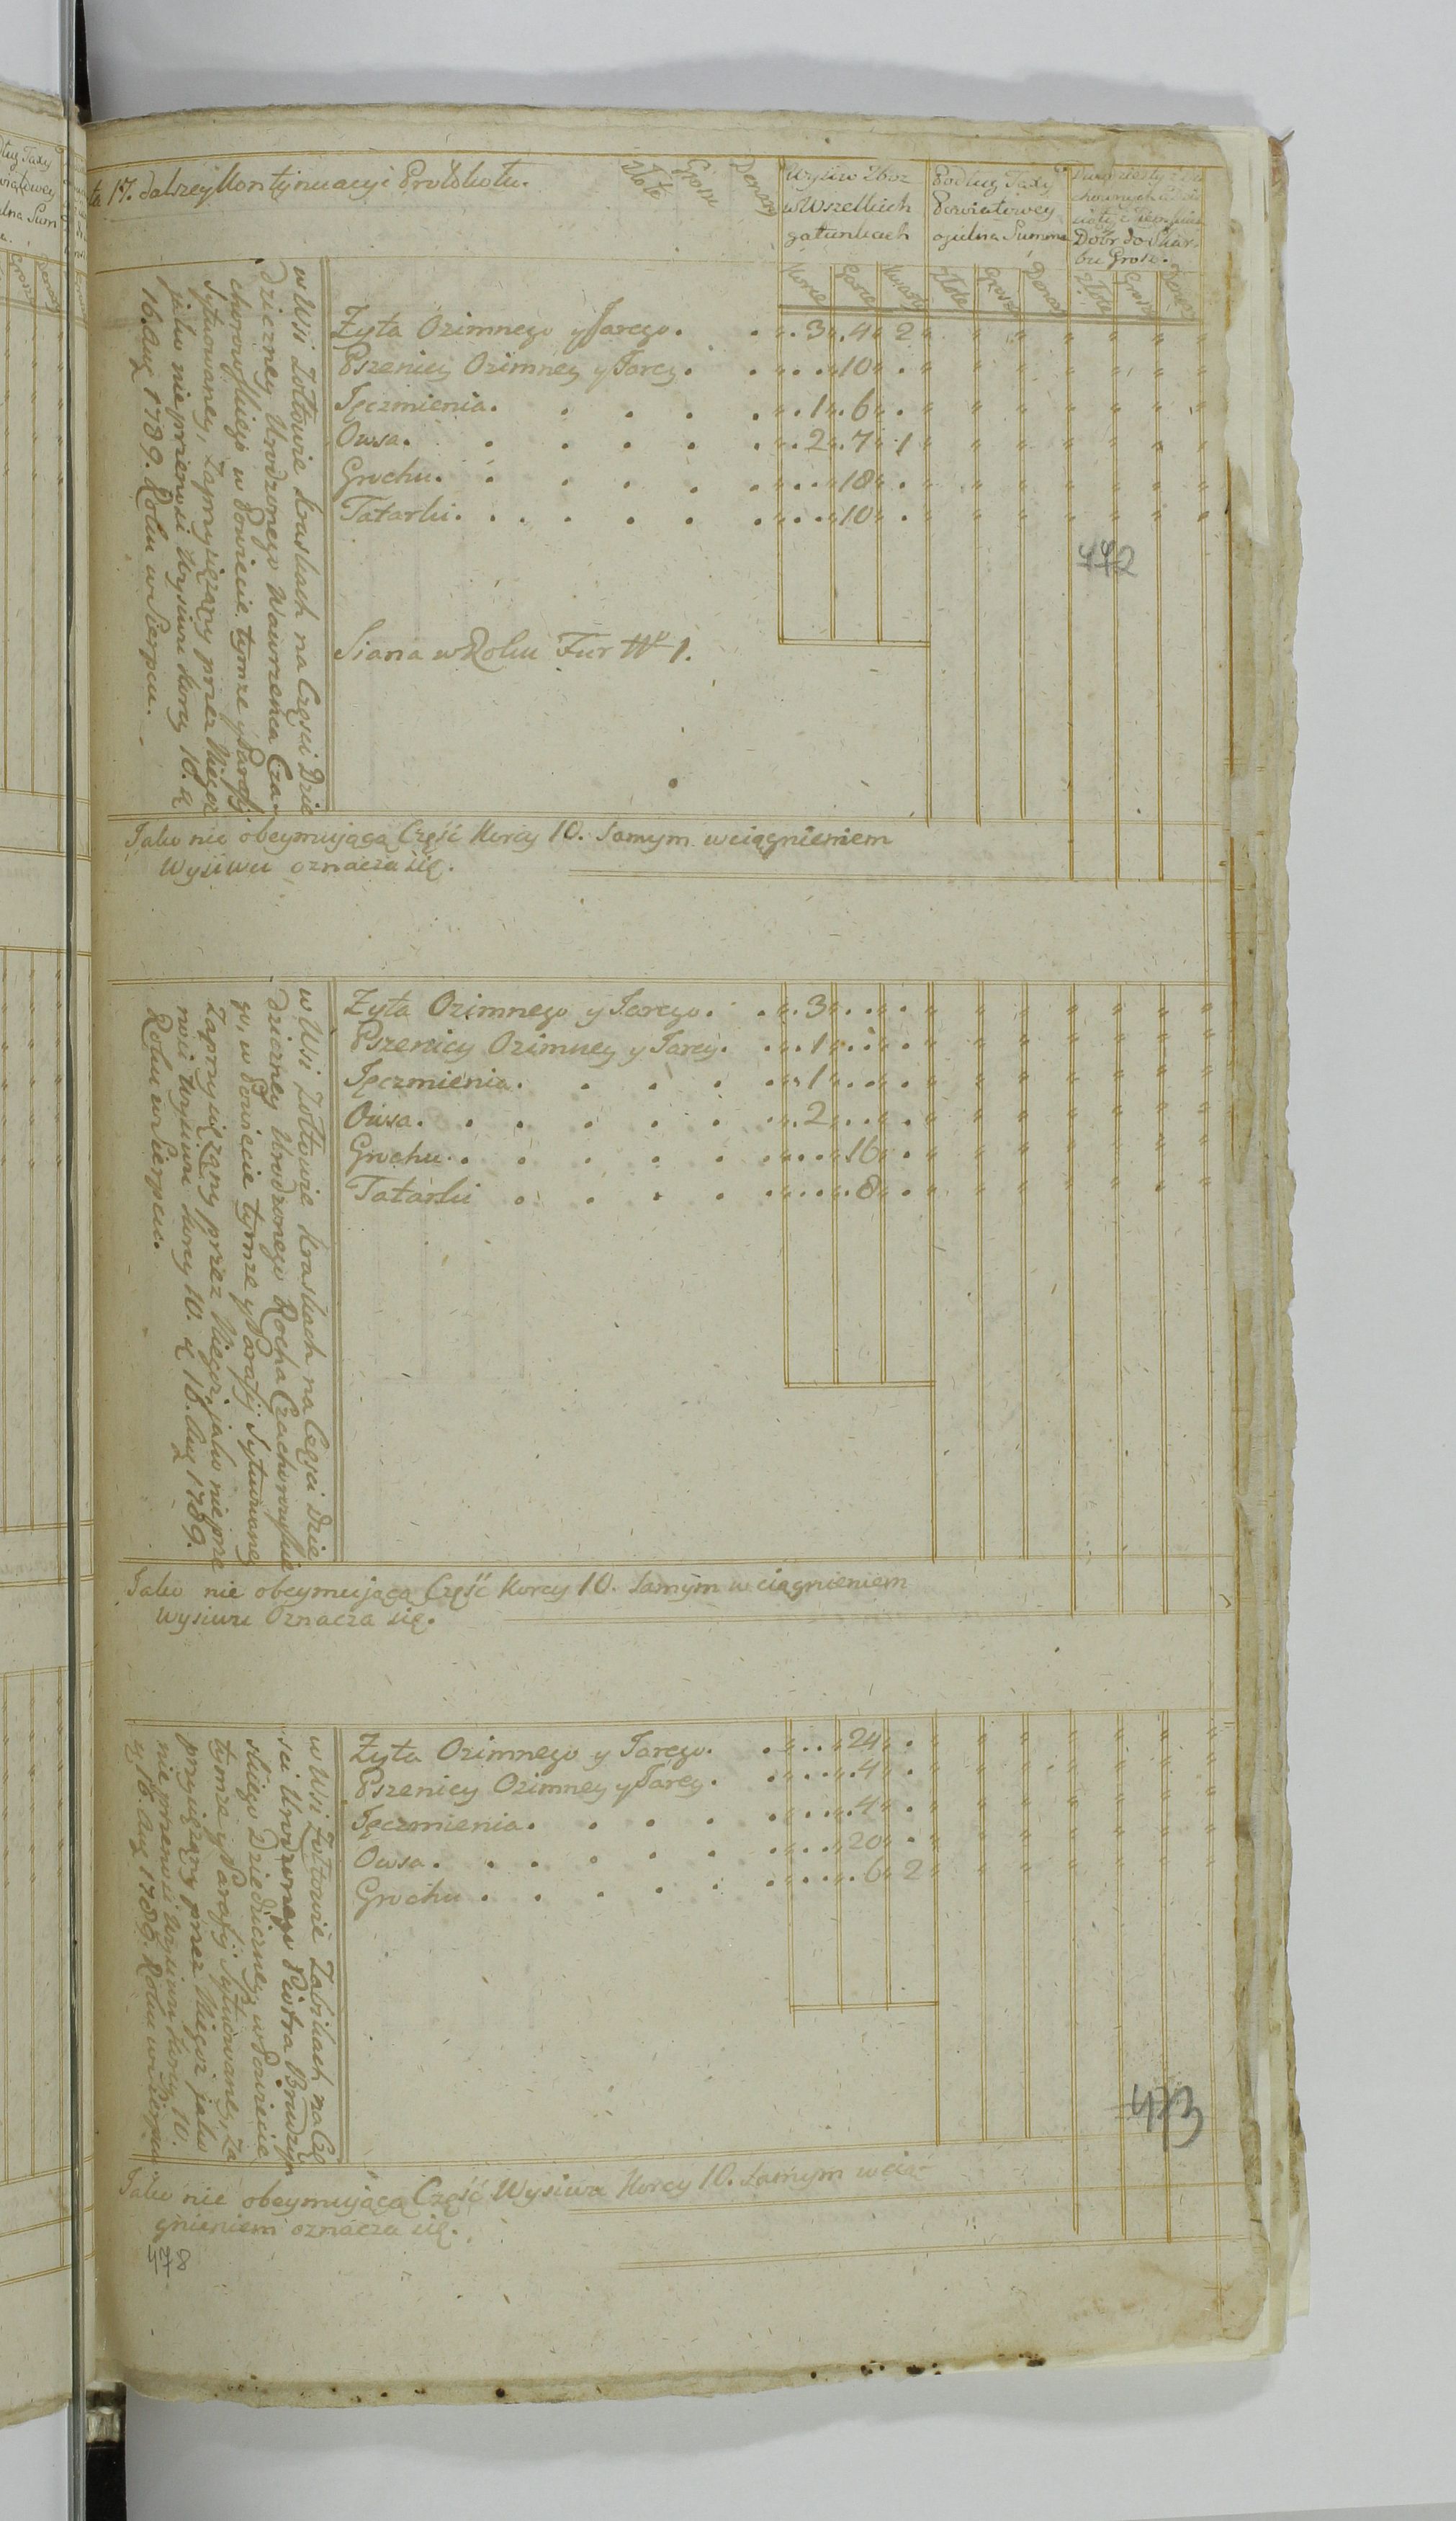 ta 17. dalszey Kontynuacyi Protokołu.
Złote Grosze Denary
Wysiew Zboż
w Wszelkich
gatunkach
Podług Taxy
Powiatowey
ogulna Summa
Dobr do Skar-
bu Grosz.
Korce Garce Kwarty Złote Grosze Denar Złote Grosze Denar
w Wsi Zołtowie Kraskach na Części Dzie
dziczney Urodzonego Wawrzeńca Cza
chorowskiego w Powiecie tymze y Parafij
Sytuowaney, Zaprzysiężony przez Niegoż
jako nie przenosi Wysiewu Korcy 10. d
16. Aug 1789. Roku w Sierpcu.
Zyta Ozimnego y Jarego. 3 4 2
Pszenicy Ozimney y Jarey. 10
Jęczmienia. 1 6
Owsa. 2 7 1
Grochu. 18
Tatarki. 10
472
Siana w Roku Fur Nº 1.
Jako nie obeymującą Część Korcy 10. samym wciągnieniem
Wysiewu oznacza się.
w Wsi Zołtowie Kraskach na Części Dzie
dziczney Urodzonego Rocha Czachorowskie
go, w Powiecie tymze y Parafij Sytuowaney
Zaprzysiężony przez Niegoż, jako nie prze
nosi Wysiewu Korcy 10. d 16. Aug 1789.
Roku w Sierpcu.
Zyta Ozimnego y Jarego. 3
Pszenicy Ozimney y Jarey. 1
Jęczmienia. 1
Owsa. 2
Grochu. 16
Tatarki 8
Jako nie obeymującą Część Korcy 10. samym wciągnieniem
Wysiewu Oznacza się.
w Wsi Zołtowie Zabikach na Czę
ści Urodzonego Piotra Brudzyń
skiego Dziedziczney, w Powiecie
tymze y Parafij Sytuowaney, Za
przysiężony przez Niegoż jako
nie przenosi Wysiewu Korcy 10.
d 16. Aug 1789. Roku w Sierpcu
Zyta Ozimnego y Jarego. 24
Pszenicy Ozimney y Jarey. 4
Jęczmienia. 4
Owsa. 20
Grochu. 6 2
473
Jako nie obeymującą Część Wysiewu Korcy 10. samym wcią-
gnieniem oznacza się.